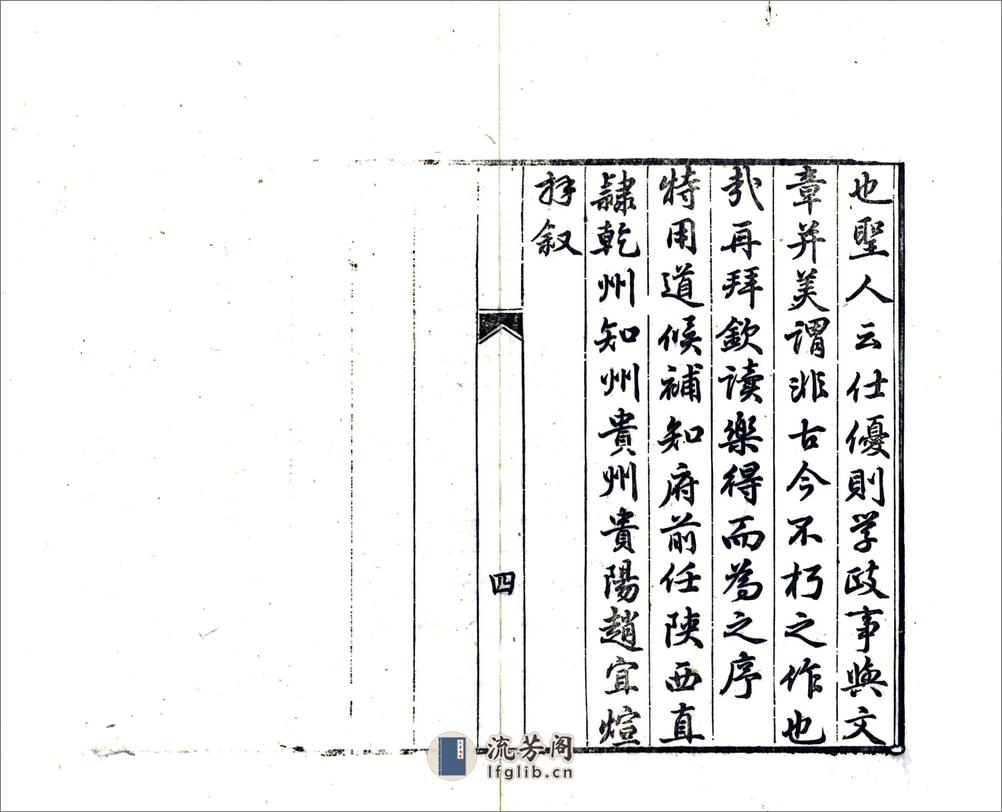 也聖人云仕優則学政事與文
章并美謂非古今不朽之作也
哉再拜欽读樂得而為之序
特用道候補知府前任陝西直
隷乾州知州貴州貴陽趙宜煊
拜叙
四
流芳阁
lfglib.cn